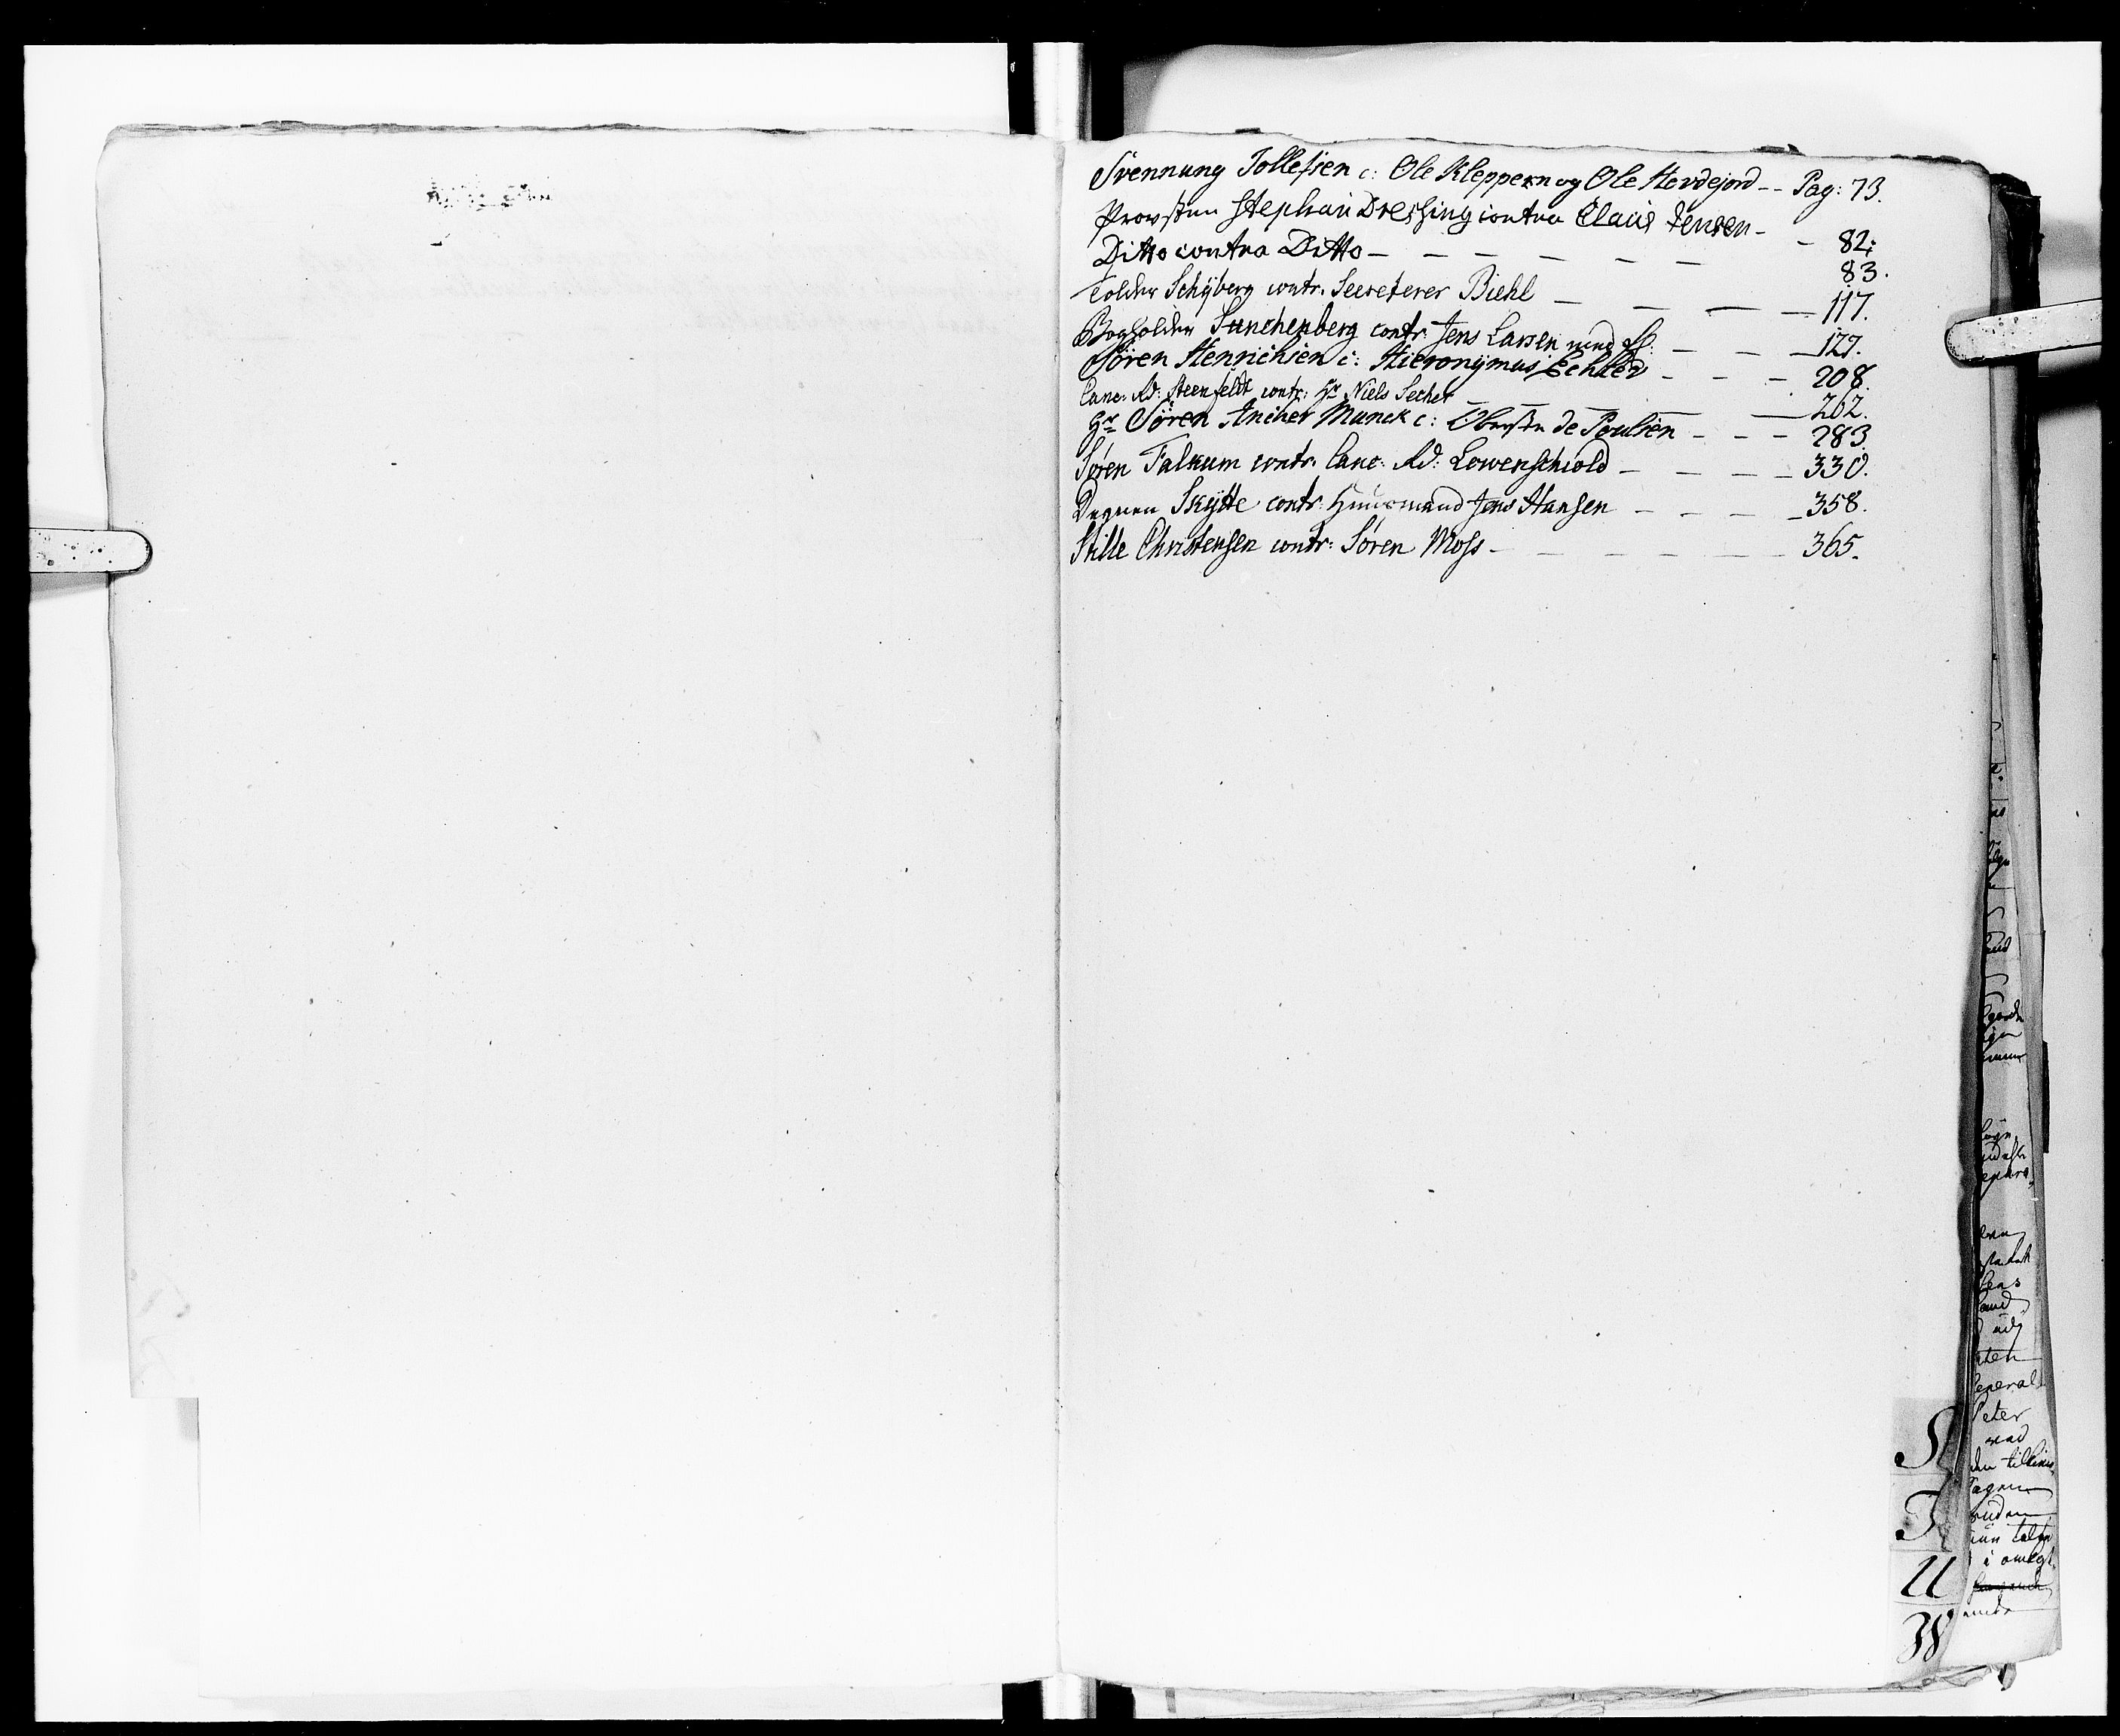 Svennung Tollefsen c: Ole Kleppern og Ole Hevdejord -- Pag: 73.
Provsten Stephan Dressing contra Claus Jensen - - 82:
Ditto contra Ditto - - - - - - - 83.
Tolder Schÿberg contr. Secreterer Biehl - - - - 117.
Bogholder Sunchenberg contr. Jens Larsen - - - 127.
Sören Henrichsen c: Hieronÿmus Echled - - - 208.
Canc. Rd: Steenfeldt contr: Hr Niels Secher - - - - 262.
Hr Sören Ancher Munck c: Obersten de Poulsen - - - 283
Søren Falkum contr. Canc: Rd: Lowenschiold - - - - 330.
Degnen Skÿtte contr: Huusmand Jens Hansen - - - - 358.
Stille Christensen contr: Søren Moss - - - - - - 365.
S
T
U